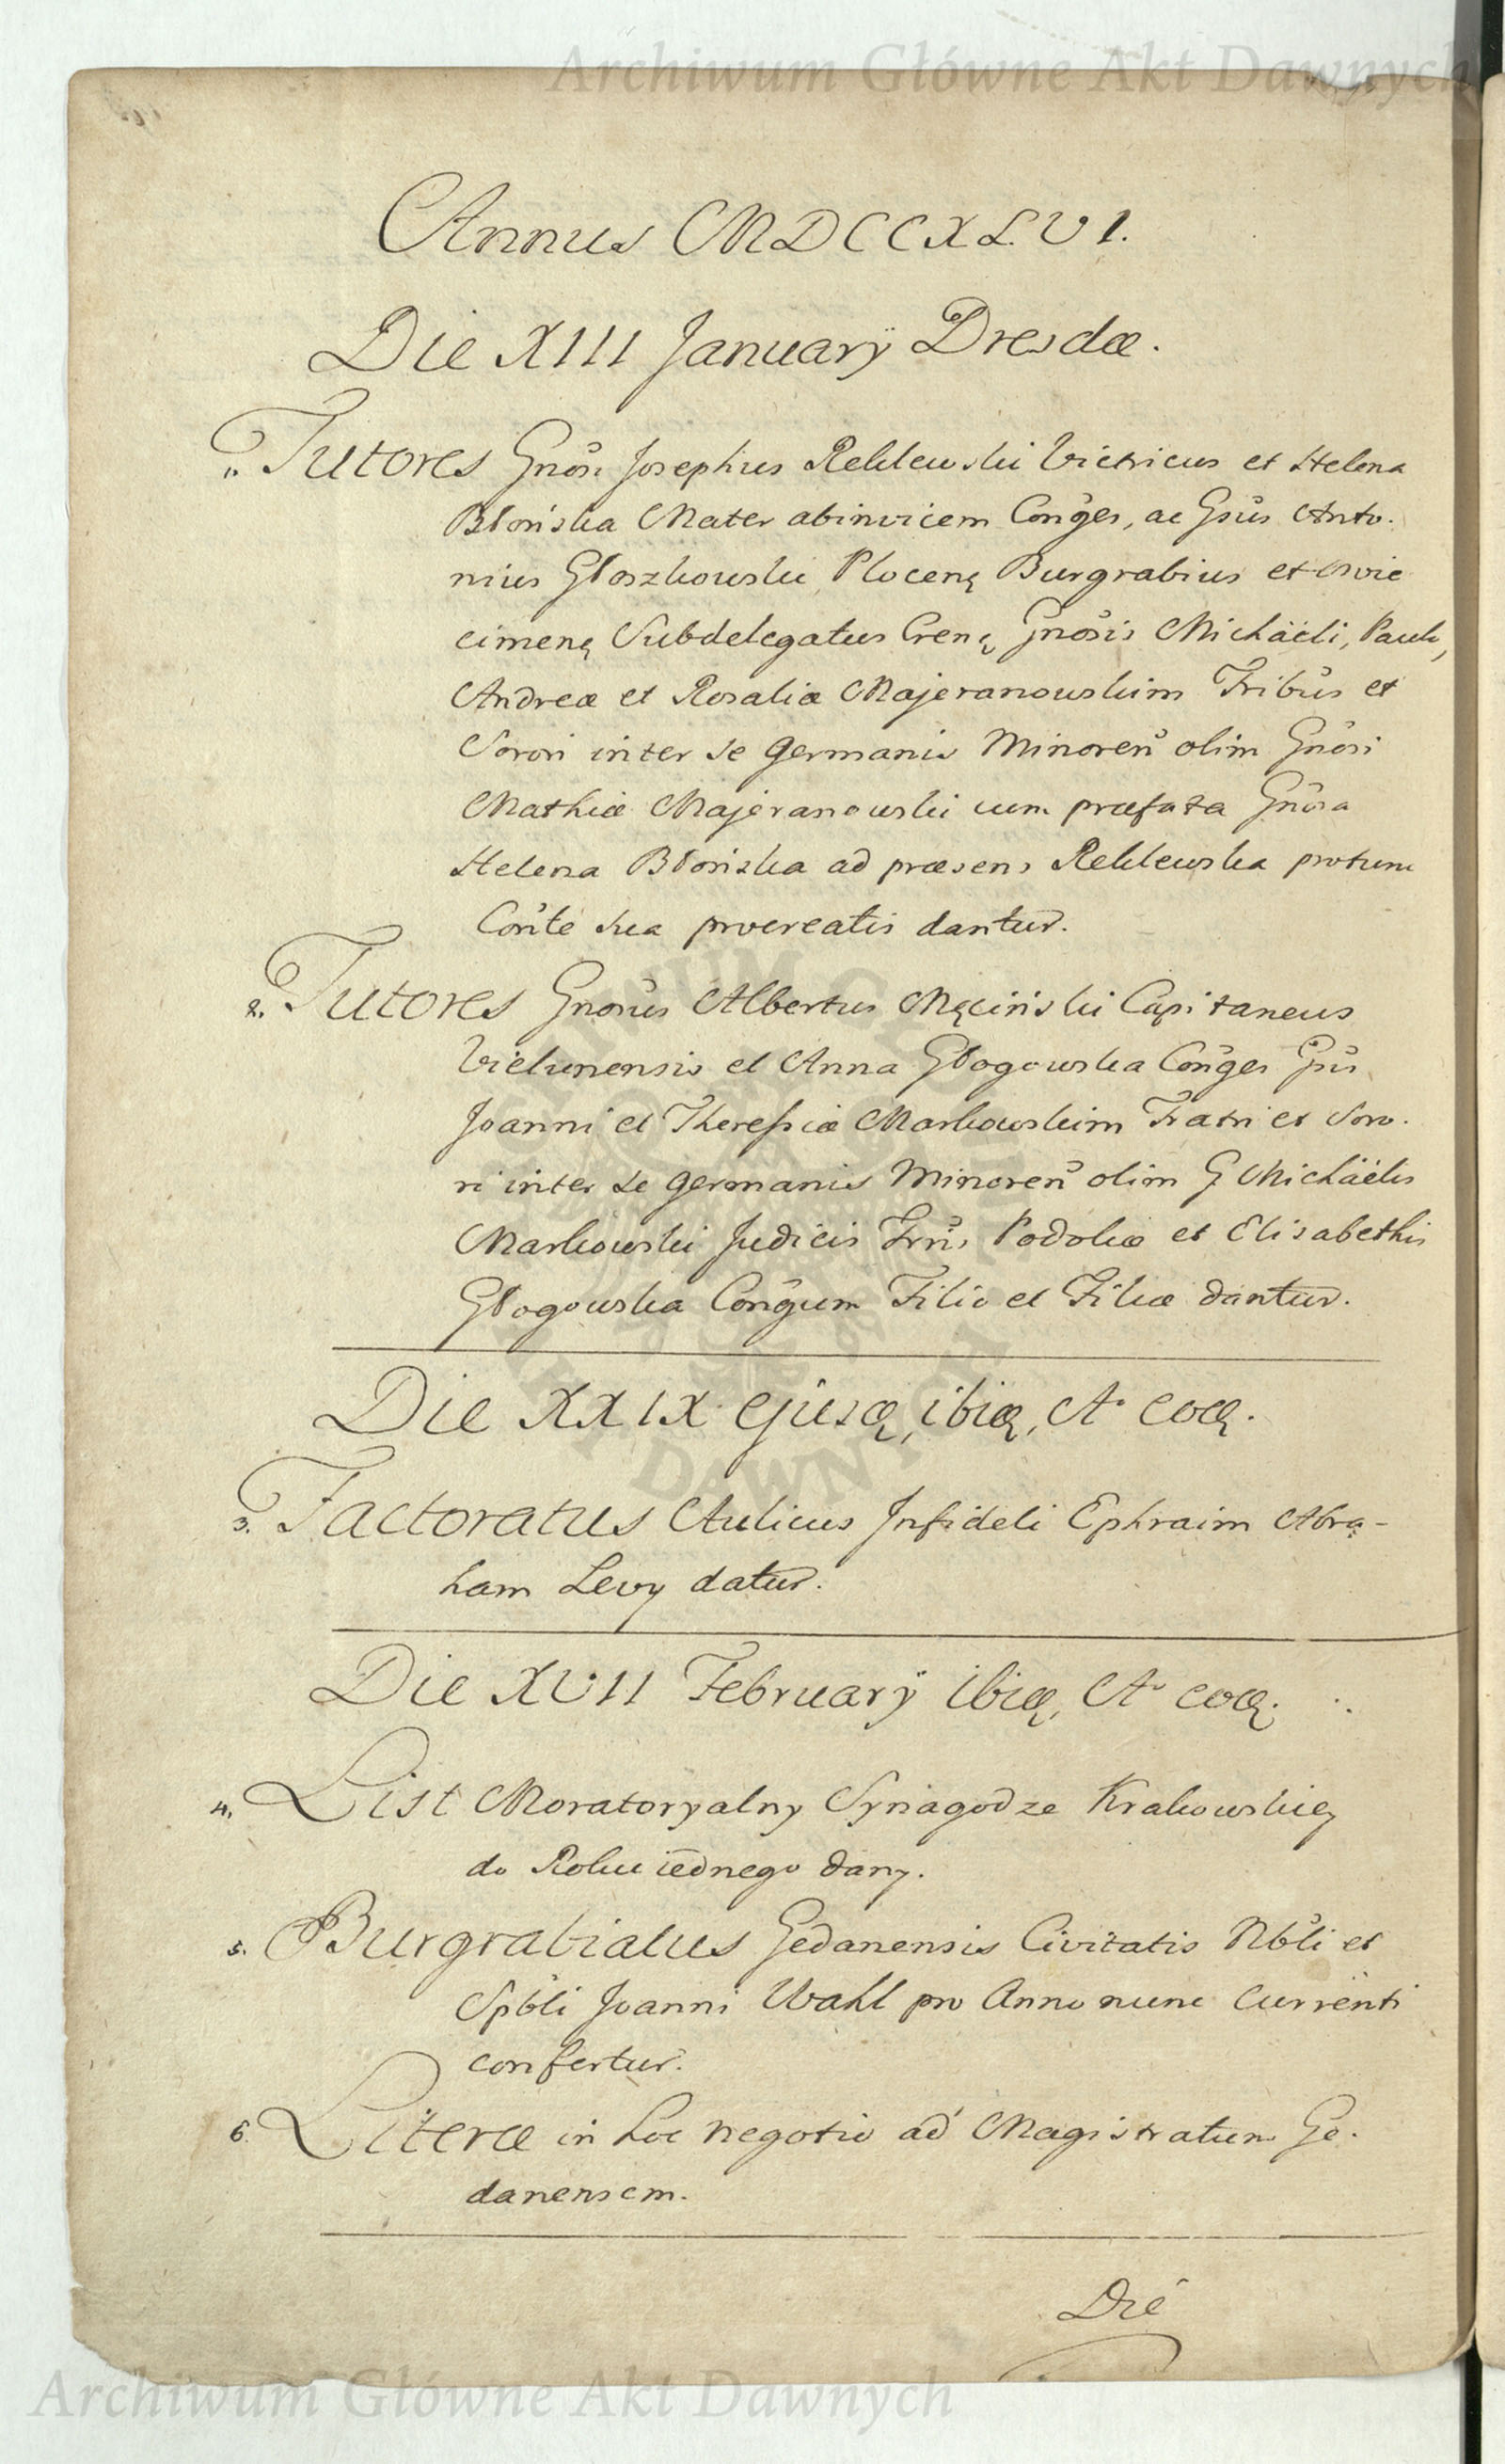 Archiwum Główne Akt Dawnych
Annus MDCCXLVI.
Die XIII Januarÿ Dresdæ.
1. Tutores Gnosi Josephus Reklewski Victricus et Helena
Błońska Mater abinvicem Conges, ac Gsus Anto.
nius Głoszkowski Plocenę Burgrabius et Oswie
cimenę Subdelegatus Crenę Gnosis Michäeli, Paulo,
Andreæ et Rosaliæ Majeranowskim Fribus et
Sorori inter se Germanis Minoren olim Gnosi
Mathiæ Majeranowski cum præfata Gnosa
Helena Błońska ad præsens Reklewska protunc
Conte sua procreatis dantur.
2. Tutores Gnosus Albertus Męciński Capitaneus
Vielunensis et Anna Głogowska Conges Gsis
Joanni et Theressiæ Markowskim Fratri et Soro.
ri inter se Germanis Minoren olim G Michäelis
Markowski Judicis Trris Podoliæ et Elisabethis
Głogowska Congum Filio et Filiæ dantur.
Die XXIX ejusdę, ibidę, A. eodę.
3. Factoratus Aulicus Infideli Ephraim Abra-
ham Levy datur.
Die XVII Februarÿ ibidę, A. eodę.
4. List Moratoryalny Synagodze Krakowskiey
do Roku iednego dany.
5. Burgrabiatus Gedanensis Civitatis Nbli et
Spbli Joanni Wahl pro Anno nunc Currenti
confertur.
6. Literæ in hoc negotio ad Magistratum Ge.
danensem.
Die
Archiwum Główne Akt Dawnych